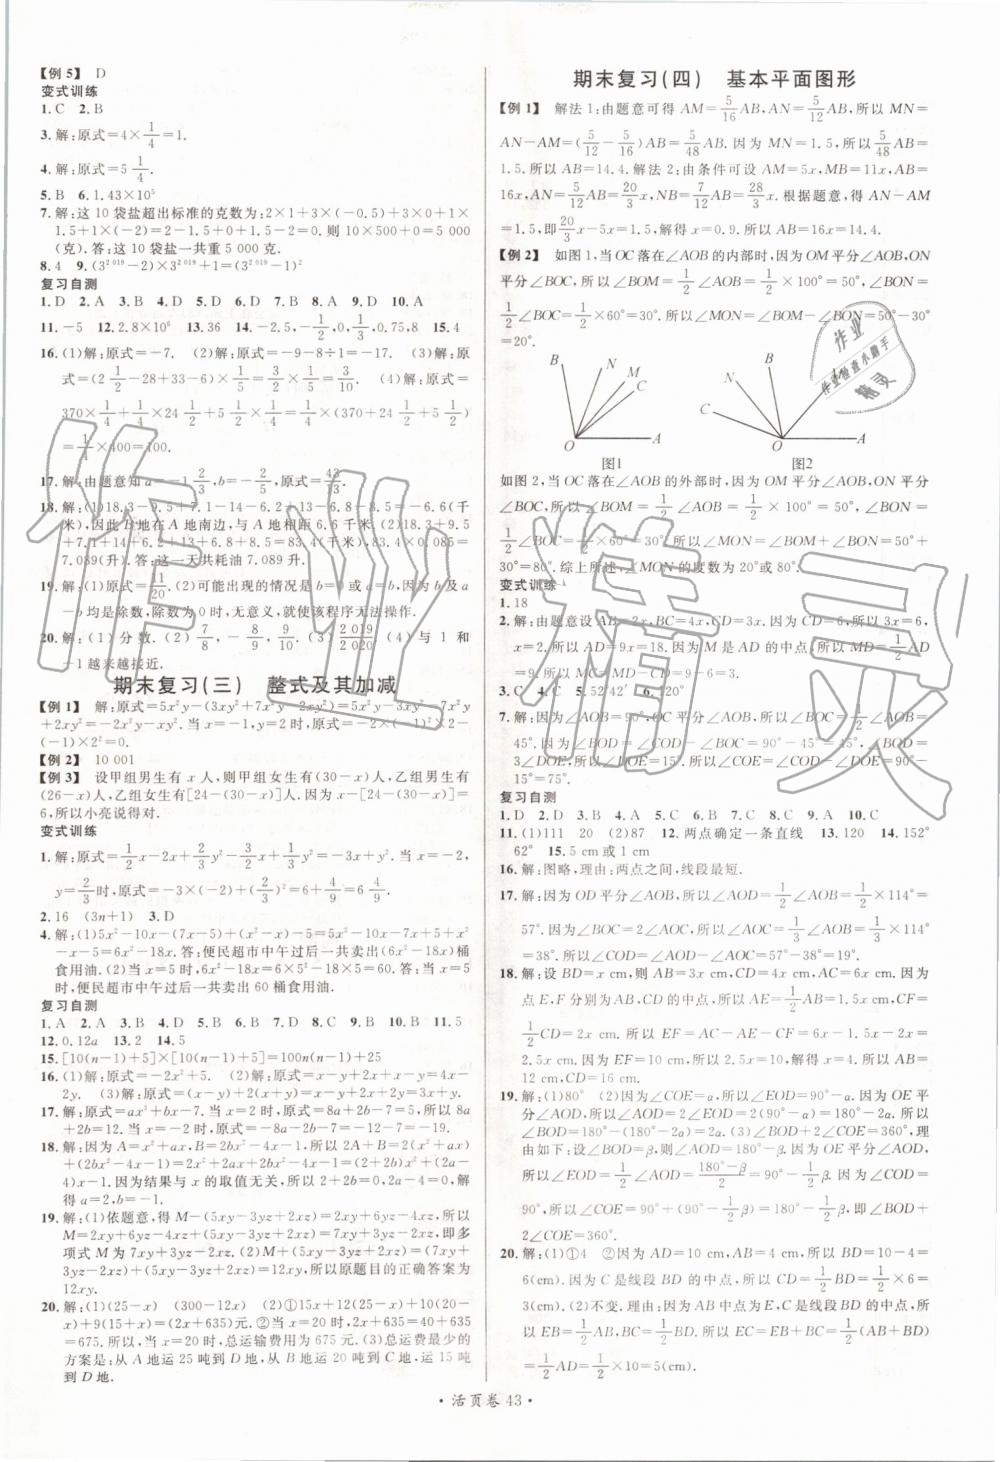 【例 5】 D
变式训练
1. C 2. B
3. 解:原式=4×1/4=1.
4. 解:原式=5 1/4.
5. B 6. 1.43×10⁵
7. 解:这 10 袋盐超出标准的克数为:2×1+3×(-0.5)+3×0+1×
1.5+1×(-2)=2-1.5+0+1.5-2=0. 则 10×500+0=5 000
(克). 答:这 10 袋盐一共重 5 000 克.
8. 4 9. (3²⁰¹⁹-2)×3²⁰¹⁹+1=(3²⁰¹⁹-1)²
复习自测
1. D 2. A 3. B 4. D 5. D 6. D 7. B 8. A 9. D 10. A
11. -5 12. 2.8×10⁶ 13. 36 14. -2.5,-1/2,0,1/3,0.75,8 15. 4
16. (1)解:原式=-7. (2)解:原式=-9-8÷1=-17. (3)解:原
式=(2 1/2-28+33-6)×1/5=3/2×1/5=3/10. (4)解:原式=
370×1/4+1/4×24 1/2+5 1/2×1/4=1/4×(370+24 1/2+5 1/2)
=1/4×400=100.
17. 解:由题意知 a=-1 2/3,b=-2/3,原式=43/13.
18. 解:(1)18.3-9.5+7.1-14-6.2+13-6.8-8.5=-6.6(千
米),因此 B 地在 A 地南边,与 A 地相距 6.6 千米.(2)18.3+9.5
+7.1+14+6.2+13+6.8+8.5=83.4(千米),83.4×0.085=
7.089(升). 答:这一天共耗油 7.089 升.
19. 解:(1)原式=11/20. (2)可能出现的情况是 b=0 或 a=b,因为 b 及 a
-b 均是除数,除数为 0 时,无意义,就使该程序无法操作.
20. 解:(1) 分数. (2) 7/8 -8/9 9/10. (3) 2 019/2 020 (4) 与 1 和
-1 越来越接近.
期末复习(三) 整式及其加减
【例 1】 解:原式=5x²y-(3xy²+7x²y-2xy²)=5x²y-3xy²-7x²y
+2xy²=-2x²y-xy². 当 x=-1,y=2 时,原式=-2×(-1)²×2-
(-1)×2²=0.
【例 2】 10 001
【例 3】 设甲组男生有 x 人,则甲组女生有(30-x)人,乙组男生有
(26-x)人,乙组女生有[24-(30-x)]人. 因为 x-[24-(30-x)]=
6,所以小亮说得对.
变式训练
1. 解:原式=1/2x-2x+2/3y²-3/2x+1/3y²=-3x+y². 当 x=-2,
y=2/3时,原式=-3×(-2)+(2/3)²=6+4/9=6 4/9.
2. 16 (3n+1) 3. D
4. 解:(1)5x²-10x-(7x-5)+(x²-x)-5=5x²-10x-7x+5+x²
-x-5=6x²-18x. 答:便民超市中午过后一共卖出(6x²-18x)桶
食用油. (2)当 x=5 时,6x²-18x=6×5²-18×5=60. 答:当 x=5
时,便民超市中午过后一共卖出 60 桶食用油.
复习自测
1. A 2. A 3. B 4. D 5. D 6. A 7. B 8. D 9. B 10. B 11. 5
12. 0.12a 13. 2 14. 5
15. [10(n-1)+5]×[10(n-1)+5]=100n(n-1)+25
16. (1)解:原式=-2x²+5. (2)解:原式=3x-y-2x-y=4x-
2y. (3)解:原式=(x-y)+2(x+y)=x-y+2x+2y=3x+y.
17. 解:原式=ax³+bx-7. 当 x=2 时,原式=8a+2b-7=5. 所以 8a
+2b=12. 当 x=-2 时,原式=-8a-2b-7=-12-7=-19.
18. 解:因为 A=x²+ax,B=2bx²-4x-1,所以 2A+B=2(x²+ax)
+(2bx²-4x-1)=2x²+2ax+2bx²-4x-1=(2+2b)x²+(2a-4)
x-1. 因为结果与 x 的取值无关,所以 2+2b=0,2a-4=0. 解
得 a=2,b=-1.
19. 解:(1)依题意,得 M-(5xy-3yz+2xz)=2xy+6yz-4xz,所以
M=2xy+6yz-4xz+(5xy-3yz+2xz)=7xy+3yz-2xz,即多
项式 M 为 7xy+3yz-2xz. (2)M+(5xy-3yz+2xz)=(7xy+
3yz-2xz)+(5xy-3yz+2xz)=12xy,所以原题目的正确答案为
12xy.
20. 解:(1)(25-x) (300-12x) (2)①15x+12(25-x)+10(20-
x)+9(15+x)=(2x+635)元. ②当 x=20 时,2x+635=40+635
=675. 所以,当 x=20 时,总运输费用为 675 元.(3)总运费最少的
方案是:从 A 地运 25 吨到 D 地,从 B 地运 20 吨到 C 地,运 15 吨
到 D 地.
期末复习(四) 基本平面图形
【例 1】 解法 1:由题意可得 AM=5/16AB,AN=5/12AB,所以 MN=
AN-AM=(5/12-5/16)AB=5/48AB. 因为 MN=1.5,所以5/48AB=
1.5. 所以 AB=14.4. 解法 2:由条件可设 AM=5x,MB=11x,AB=
16x,AN=5/12AB=20/3x,NB=7/12AB=28/3x. 根据题意,得 AN-AM
=1.5,即20/3x-5x=1.5,解得 x=0.9. 所以 AB=16x=14.4.
【例 2】 如图 1,当 OC 落在∠AOB 的内部时,因为 OM 平分∠AOB,ON
平分∠BOC,所以∠BOM=1/2∠AOB=1/2×100°=50°,∠BON=
1/2∠BOC=1/2×60°=30°. 所以∠MON=∠BOM-∠BON=50°-30°=
20°.
B N M C O A
图1
B N M C O A
图2
如图 2,当 OC 落在∠AOB 的外部时,因为 OM 平分∠AOB,ON 平分
∠BOC,所以∠BOM=1/2∠AOB=1/2×100°=50°,∠BON=
1/2∠BOC=1/2×60°=30°. 所以∠MON=∠BOM+∠BON=50°
+30°=80°. 综上所述,∠MON 的度数为 20°或 80°.
变式训练
1. 18
2. 解:由题意设 AB=2x,BC=4x,CD=3x. 因为 CD=6,所以 3x=6,
x=2. 所以 AD=9x=18. 因为 M 是 AD 的中点,所以 MD=1/2AD
=9. 所以 MC=MD-CD=9-6=3.
3. C 4. C 5. 52°42′ 6. 120°
7. 解:因为∠AOB=90°,OC 平分∠AOB,所以∠BOC=1/2∠AOB=
45°. 因为∠BOD=∠COD-∠BOC=90°-45°=45°,∠BOD=
3∠DOE,所以∠DOE=15°. 所以∠COE=∠COD-∠DOE=90°-
15°=75°.
复习自测
1. D 2. D 3. A 4. B 5. C 6. D 7. B 8. C 9. A 10. C
11. (1)111 20 (2)87 12. 两点确定一条直线 13. 120 14. 152°
62° 15. 5 cm 或 1 cm
16. 解:图略,理由:两点之间,线段最短.
17. 解:因为 OD 平分∠AOB,所以∠AOD=1/2∠AOB=1/2×114°=
57°. 因为∠BOC=2∠AOC,所以∠AOC=1/3∠AOB=1/3×114°
=38°. 所以∠COD=∠AOD-∠AOC=57°-38°=19°.
18. 解:设 BD=x cm,则 AB=3x cm,CD=4x cm,AC=6x cm. 因为
点 E,F 分别为 AB,CD 的中点,所以 AE=1/2AB=1.5x cm,CF=
1/2CD=2x cm. 所以 EF=AC-AE-CF=6x-1.5x-2x=
2.5x cm. 因为 EF=10 cm,所以 2.5x=10,解得 x=4. 所以 AB=
12 cm,CD=16 cm.
19. 解:(1)80° (2)因为∠COE=α,所以∠EOD=90°-α. 因为 OE 平
分∠AOD,所以∠AOD=2∠EOD=2(90°-α)=180°-2α. 所以
∠BOD=180°-(180°-2α)=2α. (3)∠BOD+2∠COE=360°,理
由如下:设∠BOD=β,则∠AOD=180°-β. 因为 OE 平分∠AOD,所
以∠EOD=1/2∠AOD=(180°-β)/2=90°-1/2β. 因为∠COD=
90°,所以∠COE=90°+(90°-1/2β)=180°-1/2β,即∠BOD+
2∠COE=360°.
20. 解:(1)①4 ②因为 AD=10 cm,AB=4 cm,所以 BD=10-4=
6(cm). 因为 C 是线段 BD 的中点,所以 CD=1/2BD=1/2×6=
3(cm). (2)不变. 理由:因为 AB 中点为 E,C 是线段 BD 的中点,所
以 EB=1/2AB,BC=1/2BD. 所以 EC=EB+BC=1/2(AB+BD)
=1/2AD=1/2×10=5(cm).
· 活页卷 43 ·
作业精灵
作业
作业检查小助手
精灵